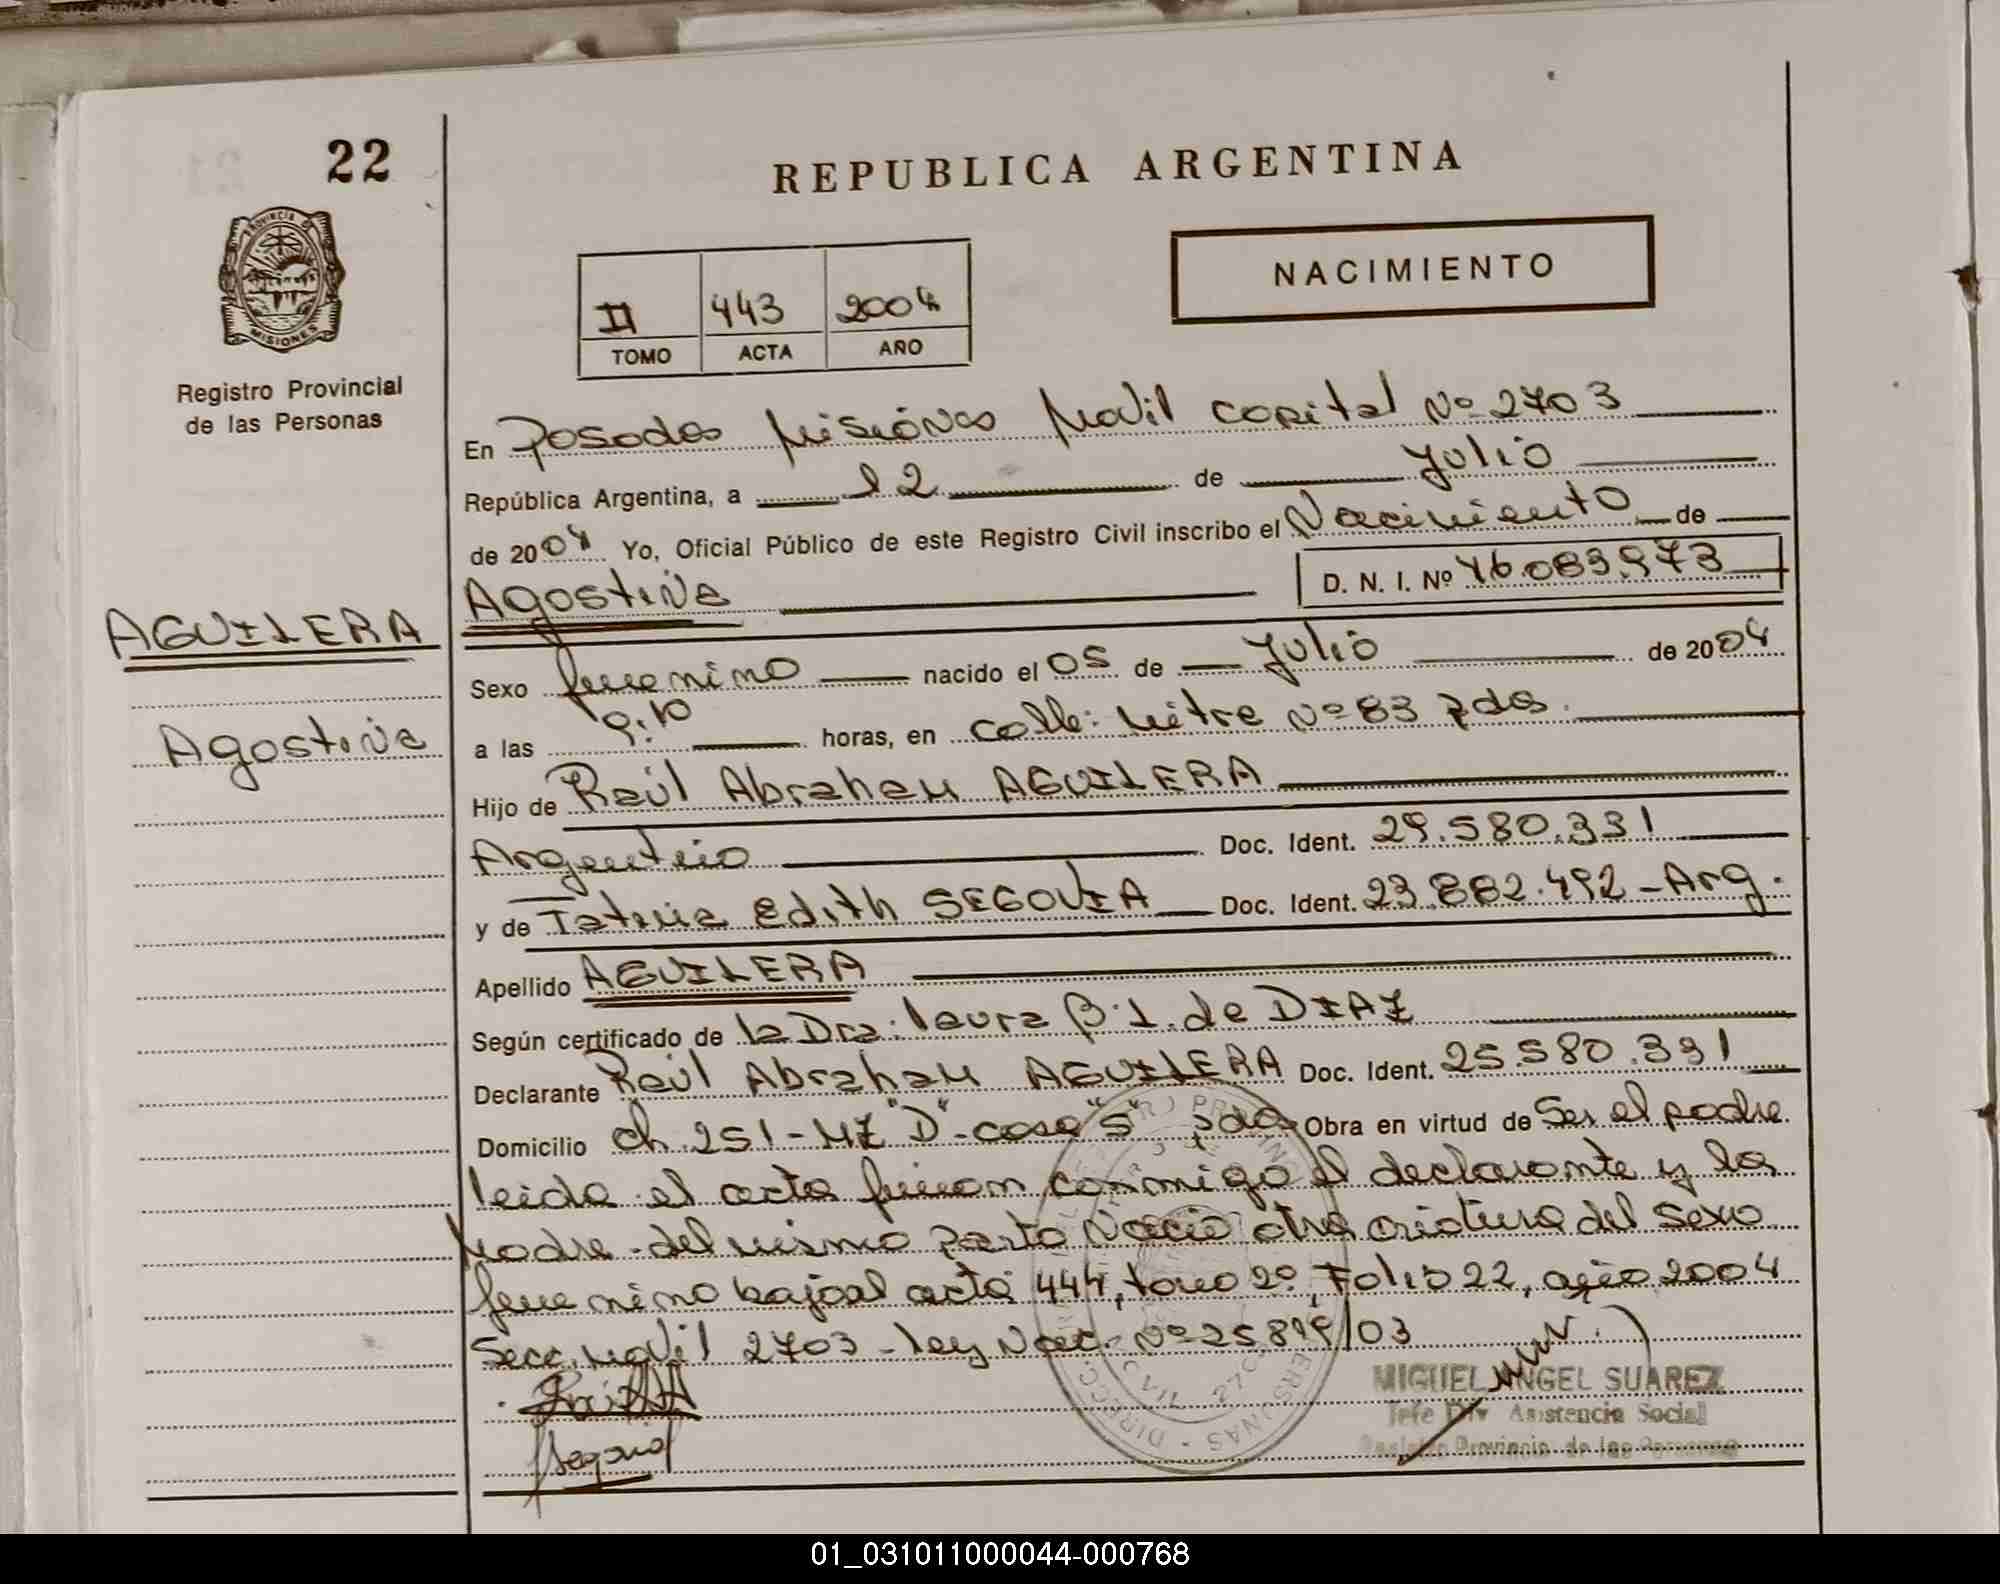 22
REPUBLICA ARGENTINA
PROVINCIA DE
MISIONES
Registro Provincial
de las Personas
NACIMIENTO
II 443 2004
TOMO ACTA AÑO
En Posadas Misiones Movil capital Nº 2703
República Argentina, a 12 de Julio
de 2004 Yo, Oficial Público de este Registro Civil inscribo el Nacimiento de
Agostina D. N. I. Nº 46.083.973
AGUILERA
Agostina
Sexo femenino nacido el 05 de Julio de 2004
a las 9:10 horas, en calle: Mitre Nº 83 Pdas.
Hijo de Raúl Abraham AGUILERA
Argentino Doc. Ident. 29.580.331
y de Tatiana Edith SEGOVIA Doc. Ident. 23.882.492 - Arg.
Apellido AGUILERA
Según certificado de la Dra. Laura B. L. de DIAZ
Declarante Raúl Abraham AGUILERA Doc. Ident. 25.580.331
Domicilio Ch. 251 - MZ "D" - casa "5" Pdas Obra en virtud de Ser el padre
leida el acta firman conmigo el declarante y la
Madre - del mismo parto Nacio otra criatura del Sexo
femenino bajo el acta 444, tomo 2º, Folio 22, año 2004
Secc. Movil 2703 - ley Nac. Nº 25.819/03
Segovia
MIGUEL ANGEL SUAREZ
Jefe Div Asistencia Social
01_031011000044-000768